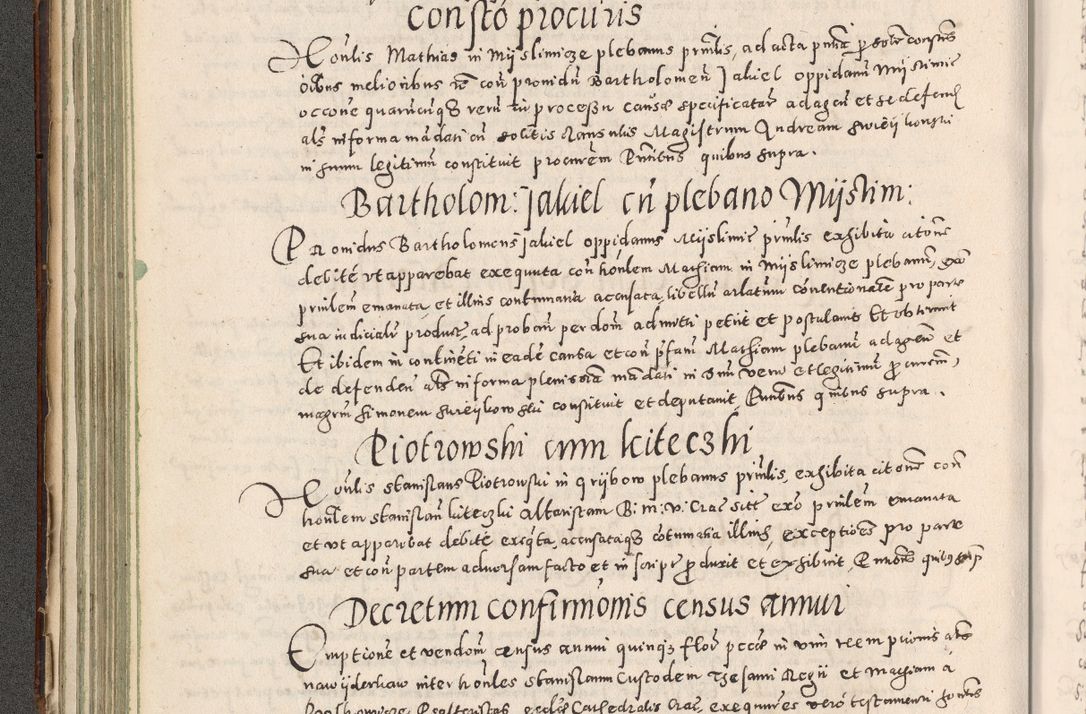 Consto procuris
Honlis Mathias in Mijslimicze plebanus prnlis, ad acta pntia
oibus melioribus con providu Bartholomeu Jakiel oppidanu Mijslimic
occone quarucuqz reru in processu cause specificatar ad agen et se defend
als in forma mandati cu solitis clausulis Magistrum Andream
in suum legitimu constituit procurem Pntibus quibus supra.
Bartholom: Jakiel cu plebano Mijslim:
Providus Bartholomeus Jakiel oppidanus Mijslimic prnlis exhibita citone
debite ut apparebat exequuta con honlem Mathiam in Mijslimicze plebanu,
prnlem emanata, et illius contumatia accusata, libellu arlatum conventionale pro parte
sua iudicialr produc, ad proban perdom admitti petiit et postulavit Et obtinuit
Et ibidem in contineti in eade causa et con pfatu Mathiam plebanu ad agen et
de defenden als in forma plenissia mandati in suu veru et legitimu procurem,
magrum Simonem constituit et deputavit, Pntibus quibus supra.
Piotrowski cum kiteczki
Honlis Stanislaus Piotrowski in Grijbow plebanus prnlis, exhibita citone con
honlem Stanislau kiteczki Altaristam B: M: V: Crac sitt exo prnlem emanata
et ut apparebat debite exequta, accusataqz cotumatia illius, exceptiones pro parte
sua et con partem adversam facto et in scrip produxit et exhibuit, Pntibus quibus sup
Decretum confirmonis census annui
Emptione et vendom census annui quinqz flor pecce in vim reempcionis als
na wijderkaw inter honles Stanislaum Custodem Thesauri Regii et Mathiam a
Psalteristas ecclie Cathedralis Crac, exequtores vero testamenti